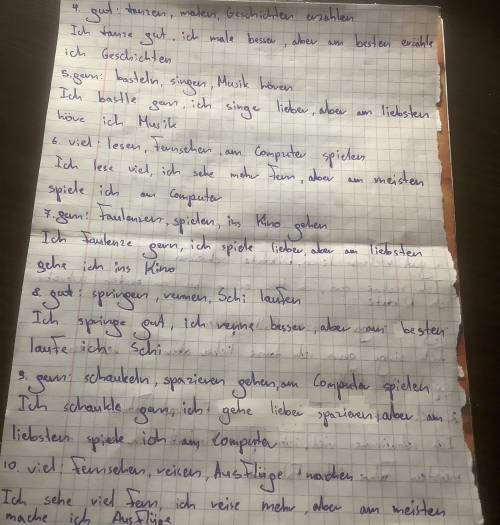 4. gut: tanzen, malen, Geschichten erzählen
Ich tanze gut, ich male besser, aber am besten erzähle
ich Geschichten
5. gern: basteln, singen, Musik hören
Ich bastle gern, ich singe lieber, aber am liebsten
höre ich Musik
6. viel: lesen, Fernsehen, am Computer spielen
Ich lese viel, ich sehe mehr fern, aber am meisten
spiele ich am Computer
7. gern: Faulenzen, spielen, ins Kino gehen
Ich Faulenze gern, ich spiele lieber, aber am liebsten
gehe ich ins Kino
8. gut: springen, rennen, Schi laufen
Ich springe gut, ich renne besser, aber am besten
laufe ich Schi
9. gern: schaukeln, spazieren gehen, am Computer spielen
Ich schaukle gern, ich gehe lieber spazieren, aber am
liebsten spiele ich am Computer
10. viel: Fernsehen, reisen, Ausflüge machen
Ich sehe viel fern, ich reise mehr, aber am meisten
mache ich Ausflüge